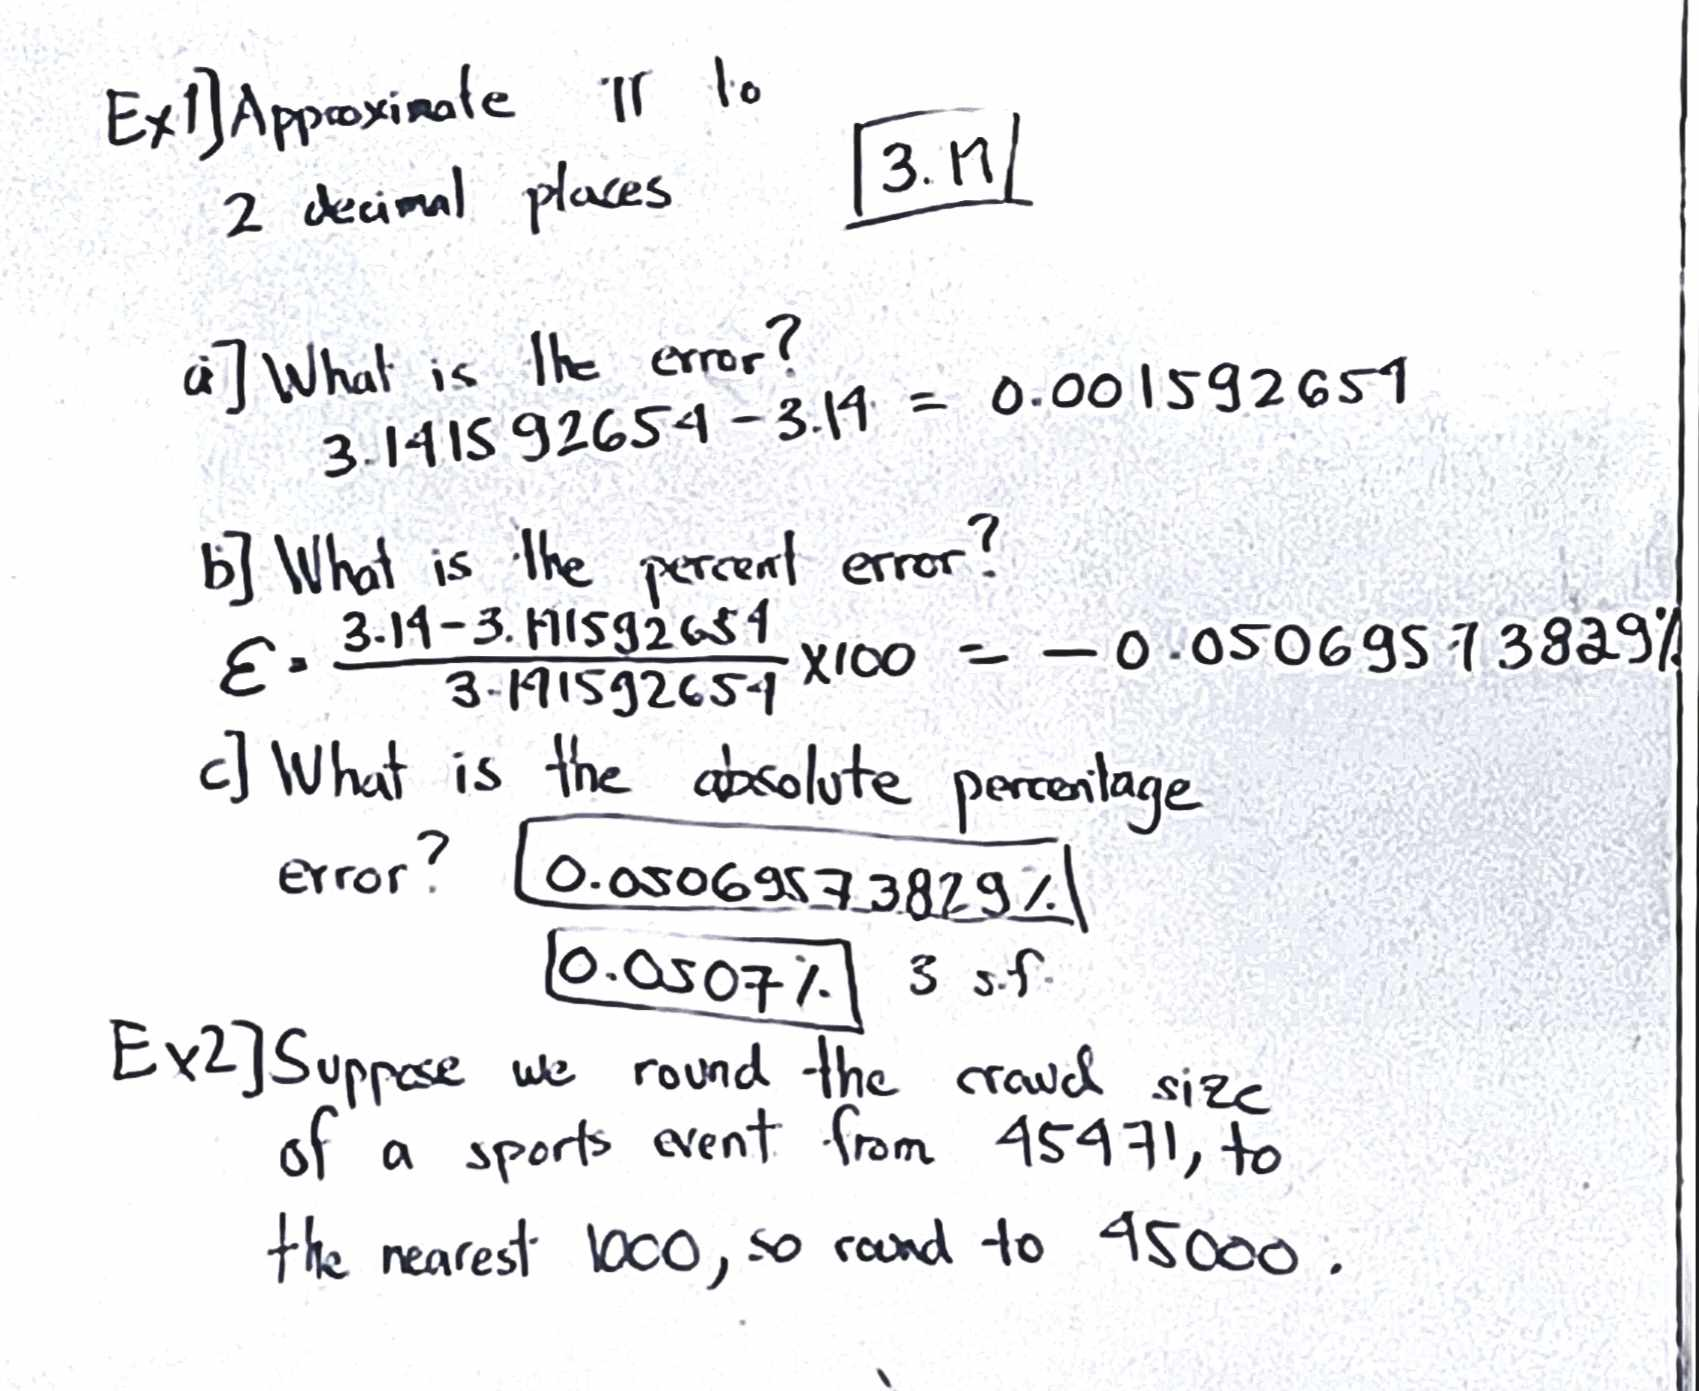 Ex1] Approximate π to
2 decimal places
3.14
a] What is the error?
3.141592654 - 3.14 = 0.001592654
b] What is the percent error?
ε = (3.14 - 3.141592654)/3.141592654 x100 = -0.05069573829%
c] What is the absolute percentage
error? 0.05069573829%
0.0507% 3 s.f.
Ex2] Suppose we round the crowd size
of a sports event from 45471, to
the nearest 1000, so round to 45000.